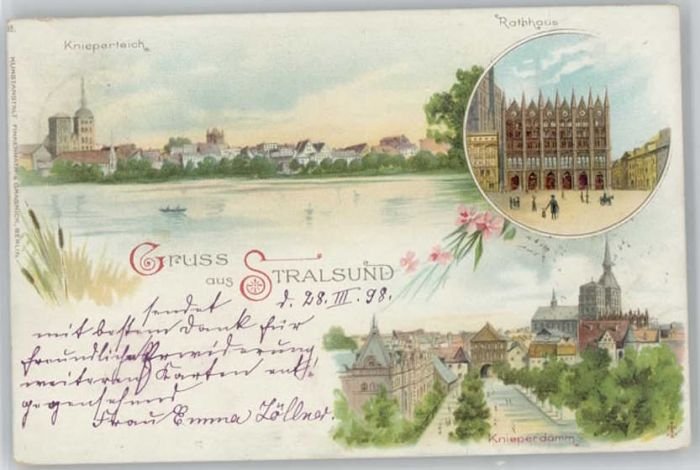 Knieperteich
Rathhaus
KUNSTANSTALT FINKENRATH & GRASNICK, BERLIN.
GRUSS
aus STRALSUND
d. 28. III. 98.
sendet
mit bestem Dank für
freundliche Erwiderung
weiteren Karten ent=
gegensehend
Frau Emma Zöllner.
Knieperdamm